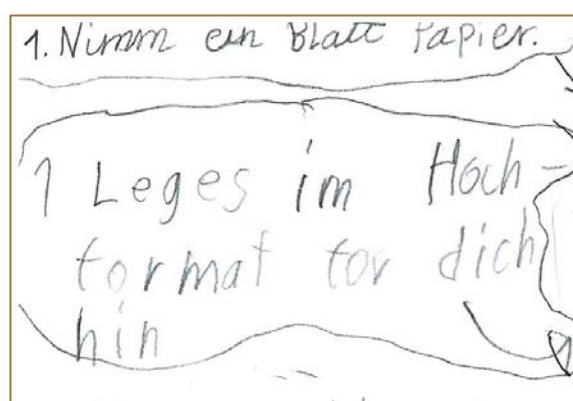 1. Nimm ein Blatt Papier.
1 Leges im Hoch-
format for dich
hin